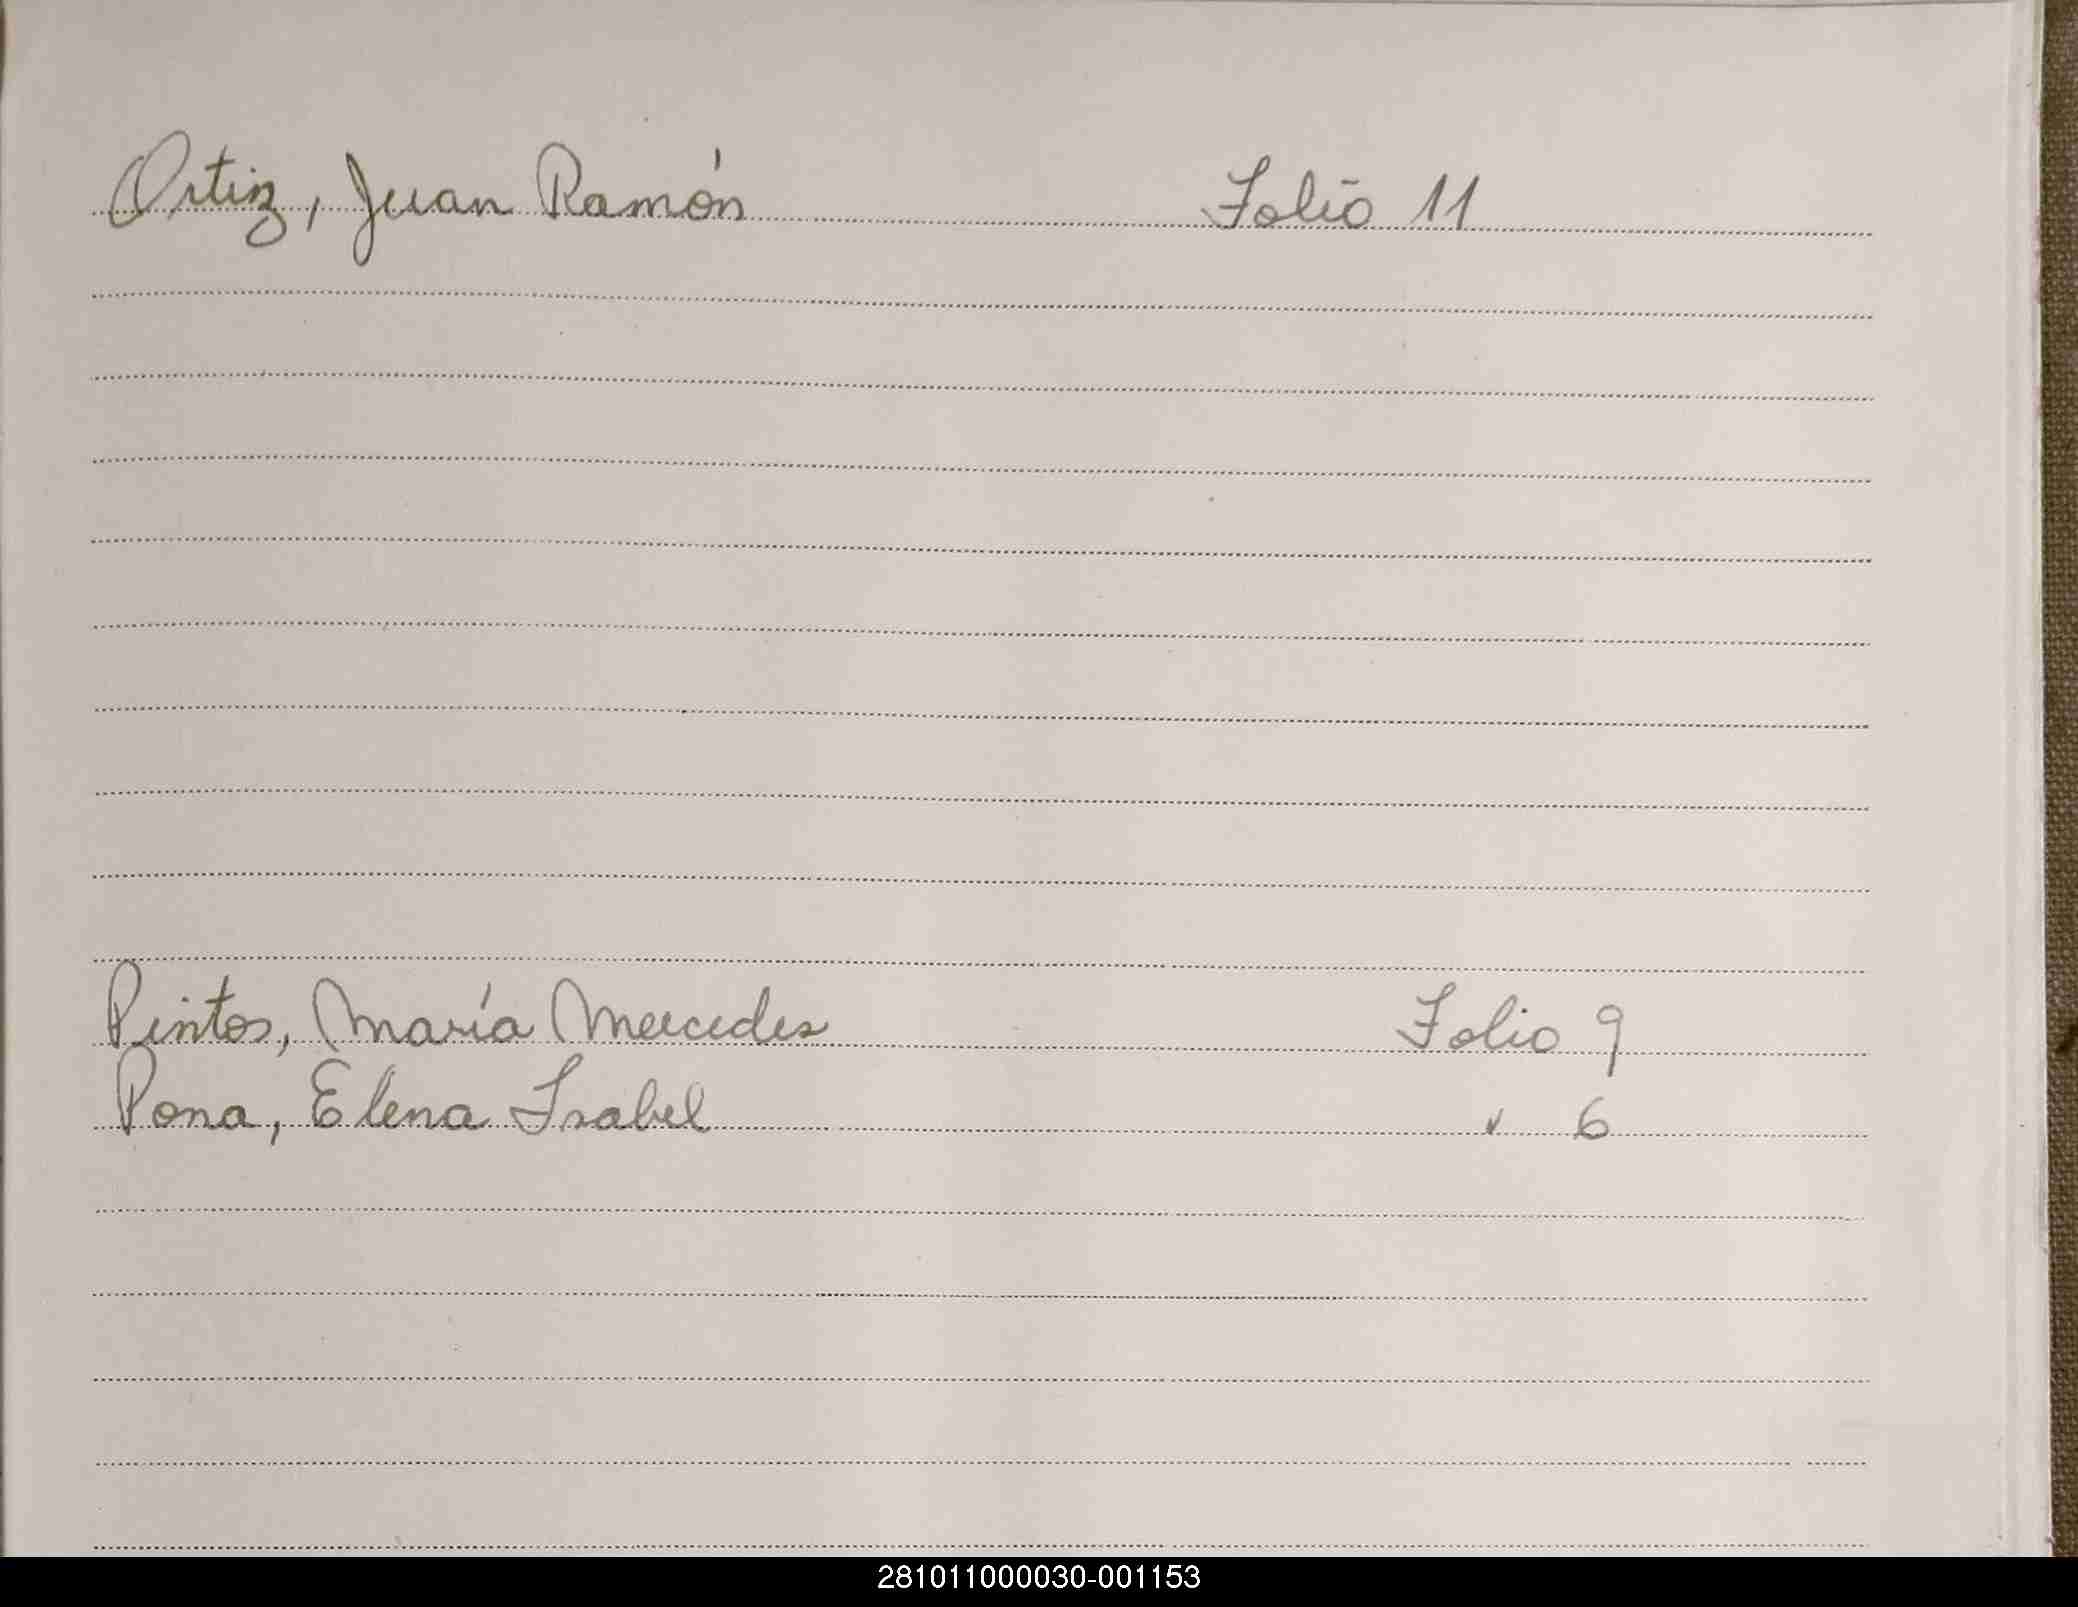 Ortiz, Juan Ramón Folio 11
Pintos, María Mercedes Folio 9
Pona, Elena Isabel " 6
281011000030-001153